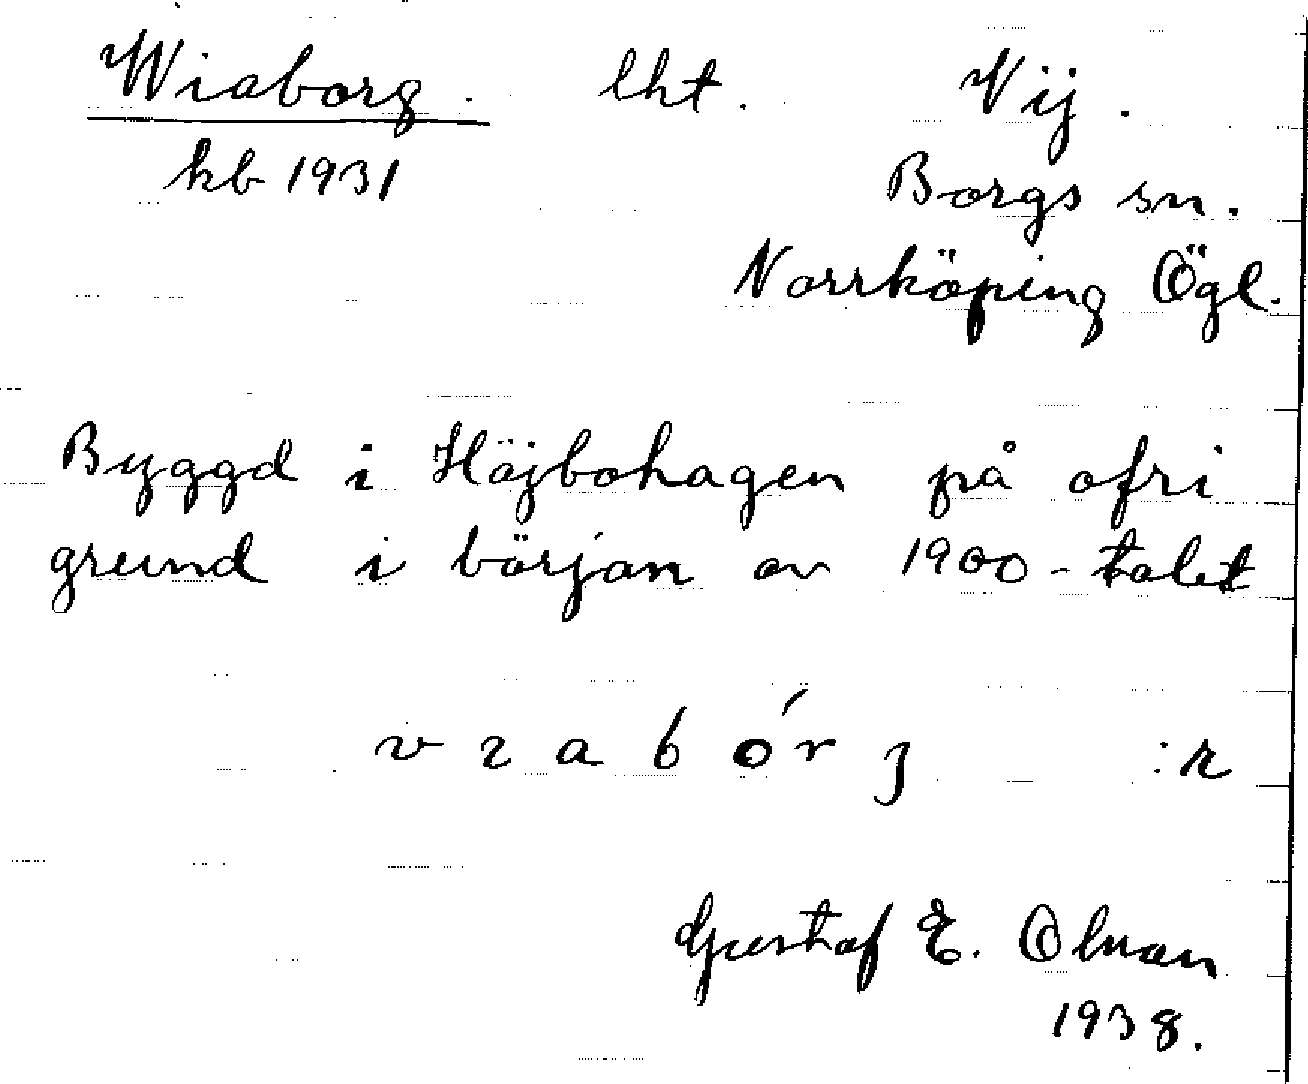 Wiaborg. lht. Vij.
kb 1931 Borgs sn.
Norrköping Ögl.
Byggd i Höjbohagen på ofri
grund i början av 1900-talet
v ı a b ó r j :r
Gustaf E. Olman
1938.